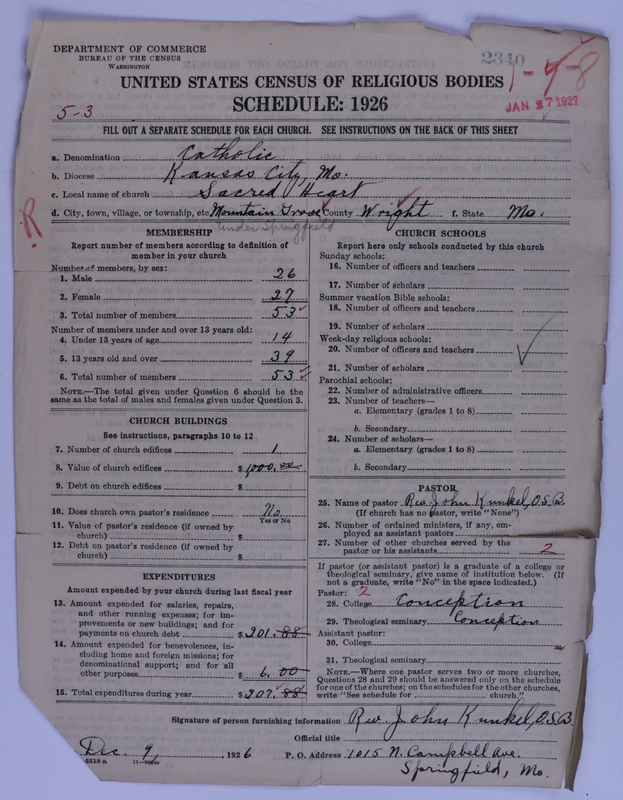 DEPARTMENT OF COMMERCE
BUREAU OF THE CENSUS
WASHINGTON
2340
1-4-8
UNITED STATES CENSUS OF RELIGIOUS BODIES
JAN 27 1927
5-3
SCHEDULE: 1926
FILL OUT A SEPARATE SCHEDULE FOR EACH CHURCH. SEE INSTRUCTIONS ON THE BACK OF THIS SHEET
a. Denomination Catholic
b. Diocese Kansas City, Mo.
c. Local name of church Sacred Heart
d. City, town, village, or township, etc. Mountain Grove County Wright f. State Mo.
R
under Springfield
MEMBERSHIP
Report number of members according to definition of
member in your church
Number of members, by sex:
1. Male 26
2. Female 27
3. Total number of members 53
Number of members under and over 13 years old:
4. Under 13 years of age 14
5. 13 years old and over 39
6. Total number of members 53
NOTE.—The total given under Question 6 should be
same as the total of males and females given under Question 3.
CHURCH BUILDINGS
See instructions, paragraphs 10 to 12
7. Number of church edifices 1
8. Value of church edifices $1000.00
9. Debt on church edifices $
10. Does church own pastor's residence No
Yes or No
11. Value of pastor's residence (if owned by
church) $
12. Debt on pastor's residence (if owned by
church) $
EXPENDITURES
Amount expended by your church during last fiscal year
13. Amount expended for salaries, repairs,
and other running expenses; for im-
provements or new buildings; and for
payments on church debt $201.88
14. Amount expended for benevolences, in-
cluding home and foreign missions; for
denominational support; and for all
other purposes 6.00
15. Total expenditures during year $207.88
CHURCH SCHOOLS
Report here only schools conducted by this church
Sunday schools:
16. Number of officers and teachers
17. Number of scholars
Summer vacation Bible schools:
18. Number of officers and teachers
19. Number of scholars
Week-day religious schools:
20. Number of officers and teachers
21. Number of scholars
Parochial schools:
22. Number of administrative officers
23. Number of teachers—
a. Elementary (grades 1 to 8)
b. Secondary
24. Number of scholars—
a. Elementary (grades 1 to 8)
b. Secondary
PASTOR
25. Name of pastor Rev. John Kunkel, O.S.B.
(If church has no pastor, write "None")
26. Number of ordained ministers, if any, em-
ployed as assistant pastors
27. Number of other churches served by the
pastor or his assistants 2
If pastor (or assistant pastor) is a graduate of a college or
theological seminary, give name of institution below. (If
not a graduate, write "No" in the space indicated.)
Pastor: 2
28. College Conception
29. Theological seminary Conception
Assistant pastor:
30. College
31. Theological seminary
NOTE.—Where one pastor serves two or more churches,
Questions 28 and 29 should be answered only on the schedule
for one of the churches; on the schedules for the other churches,
write "See schedule for church."
Signature of person furnishing information Rev. John Kunkel, O.S.B.
Official title
Dec. 9, 1926 P. O. Address 1015 N. Campbell Ave.
Springfield, Mo.